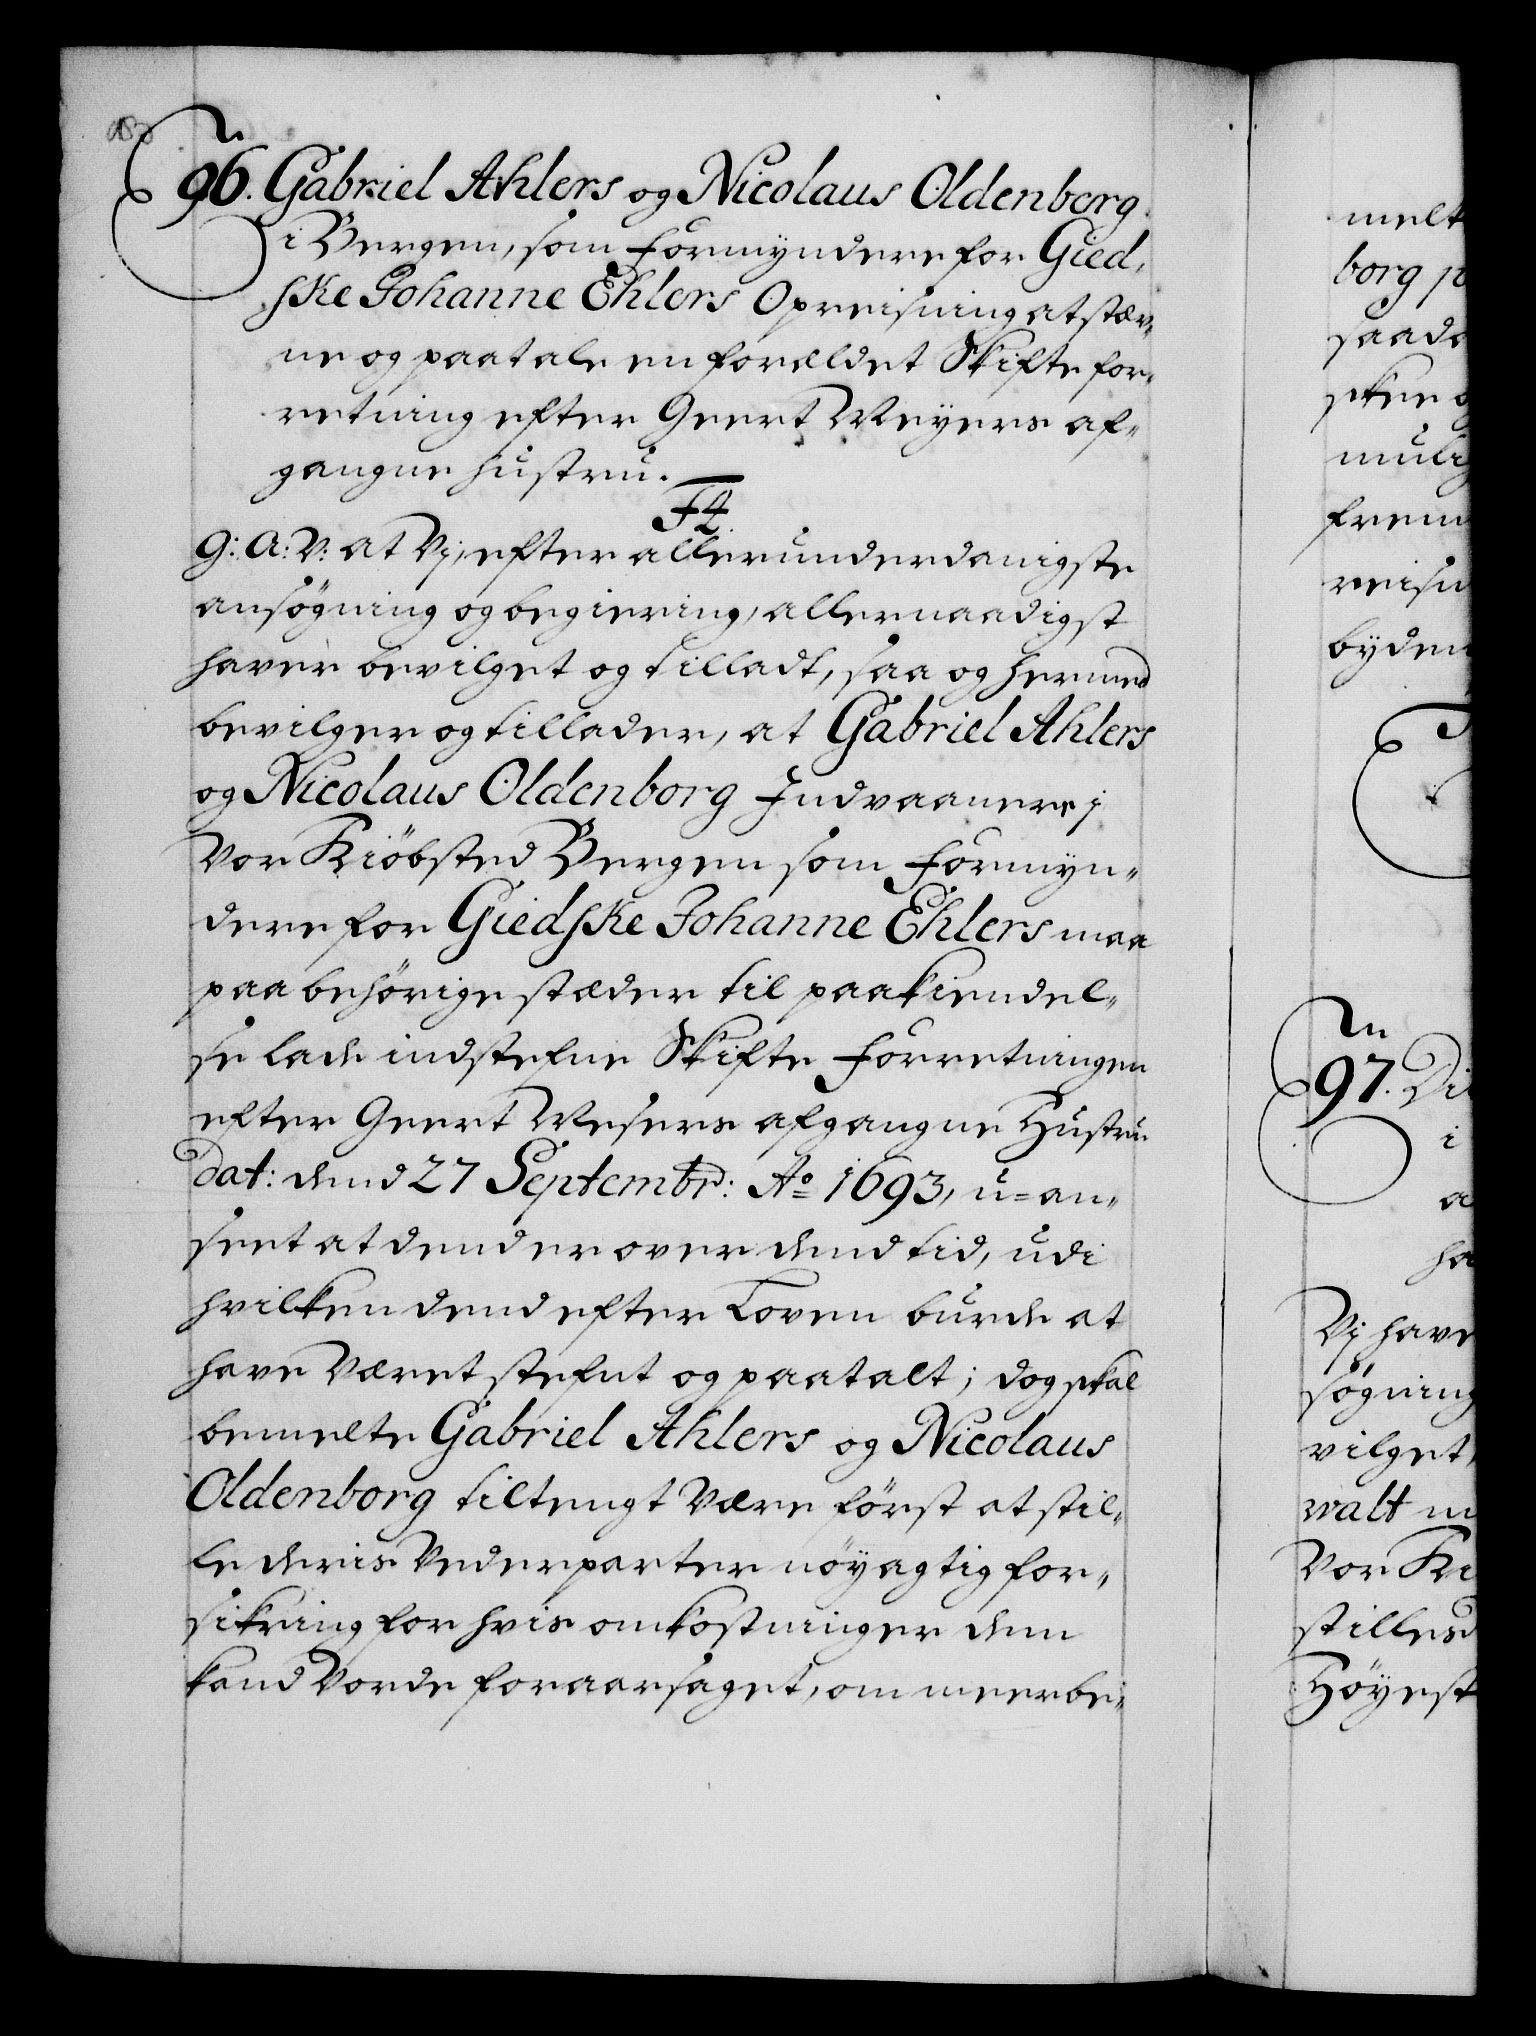 96. Gabriel Ahlers og Nicolaus Oldenborg
i Bergen, som Formyndere for Gied,
ske Johanne Ehlers Opreisning at stæv„
ne og paatale en forældet Skifte for„
retning efter Geert Meyers af„
gangne hustru.
F4.
G: A: V: at Vj, efter allerunderdanigste
ansøgning og begiering, allernaadigst
haver bevilget og tilladt, saa og hermed
bevilger og tillader, at Gabriel Ahlers
og Nicolaus Oldenborg Indvaanere i
Vor Kiöbsted Bergen som Formyn„
dere for Giedske Johanne Ehlers maa
paa behörige stæder til paakiendel„
se lade indstefne Skifte Forretningen
efter Geert Mesers afgangne Hustrue
dat: dend 27 Septembr: Ao 1693, u=an„
seet at dend er over dend tid, udi
hvilken dend efter Loven burde at
have Været stefnt og paatalt; dog skal
bemelte Gabriel Ahlers og Nicolaus
Oldenborg tiltengt Være först at stil„
le deris Vederparter nöyagtig for„
sikring for hvis omkostninger dem
kand Vorde foraarsaget, om meerbe„
melt
borg p
saada
skee o
mulig
frem
reisn
byden
97. Di
i
a
ha
Vj have
søgning
vilget,
walt m
Vor Ki
stilles
Höyest